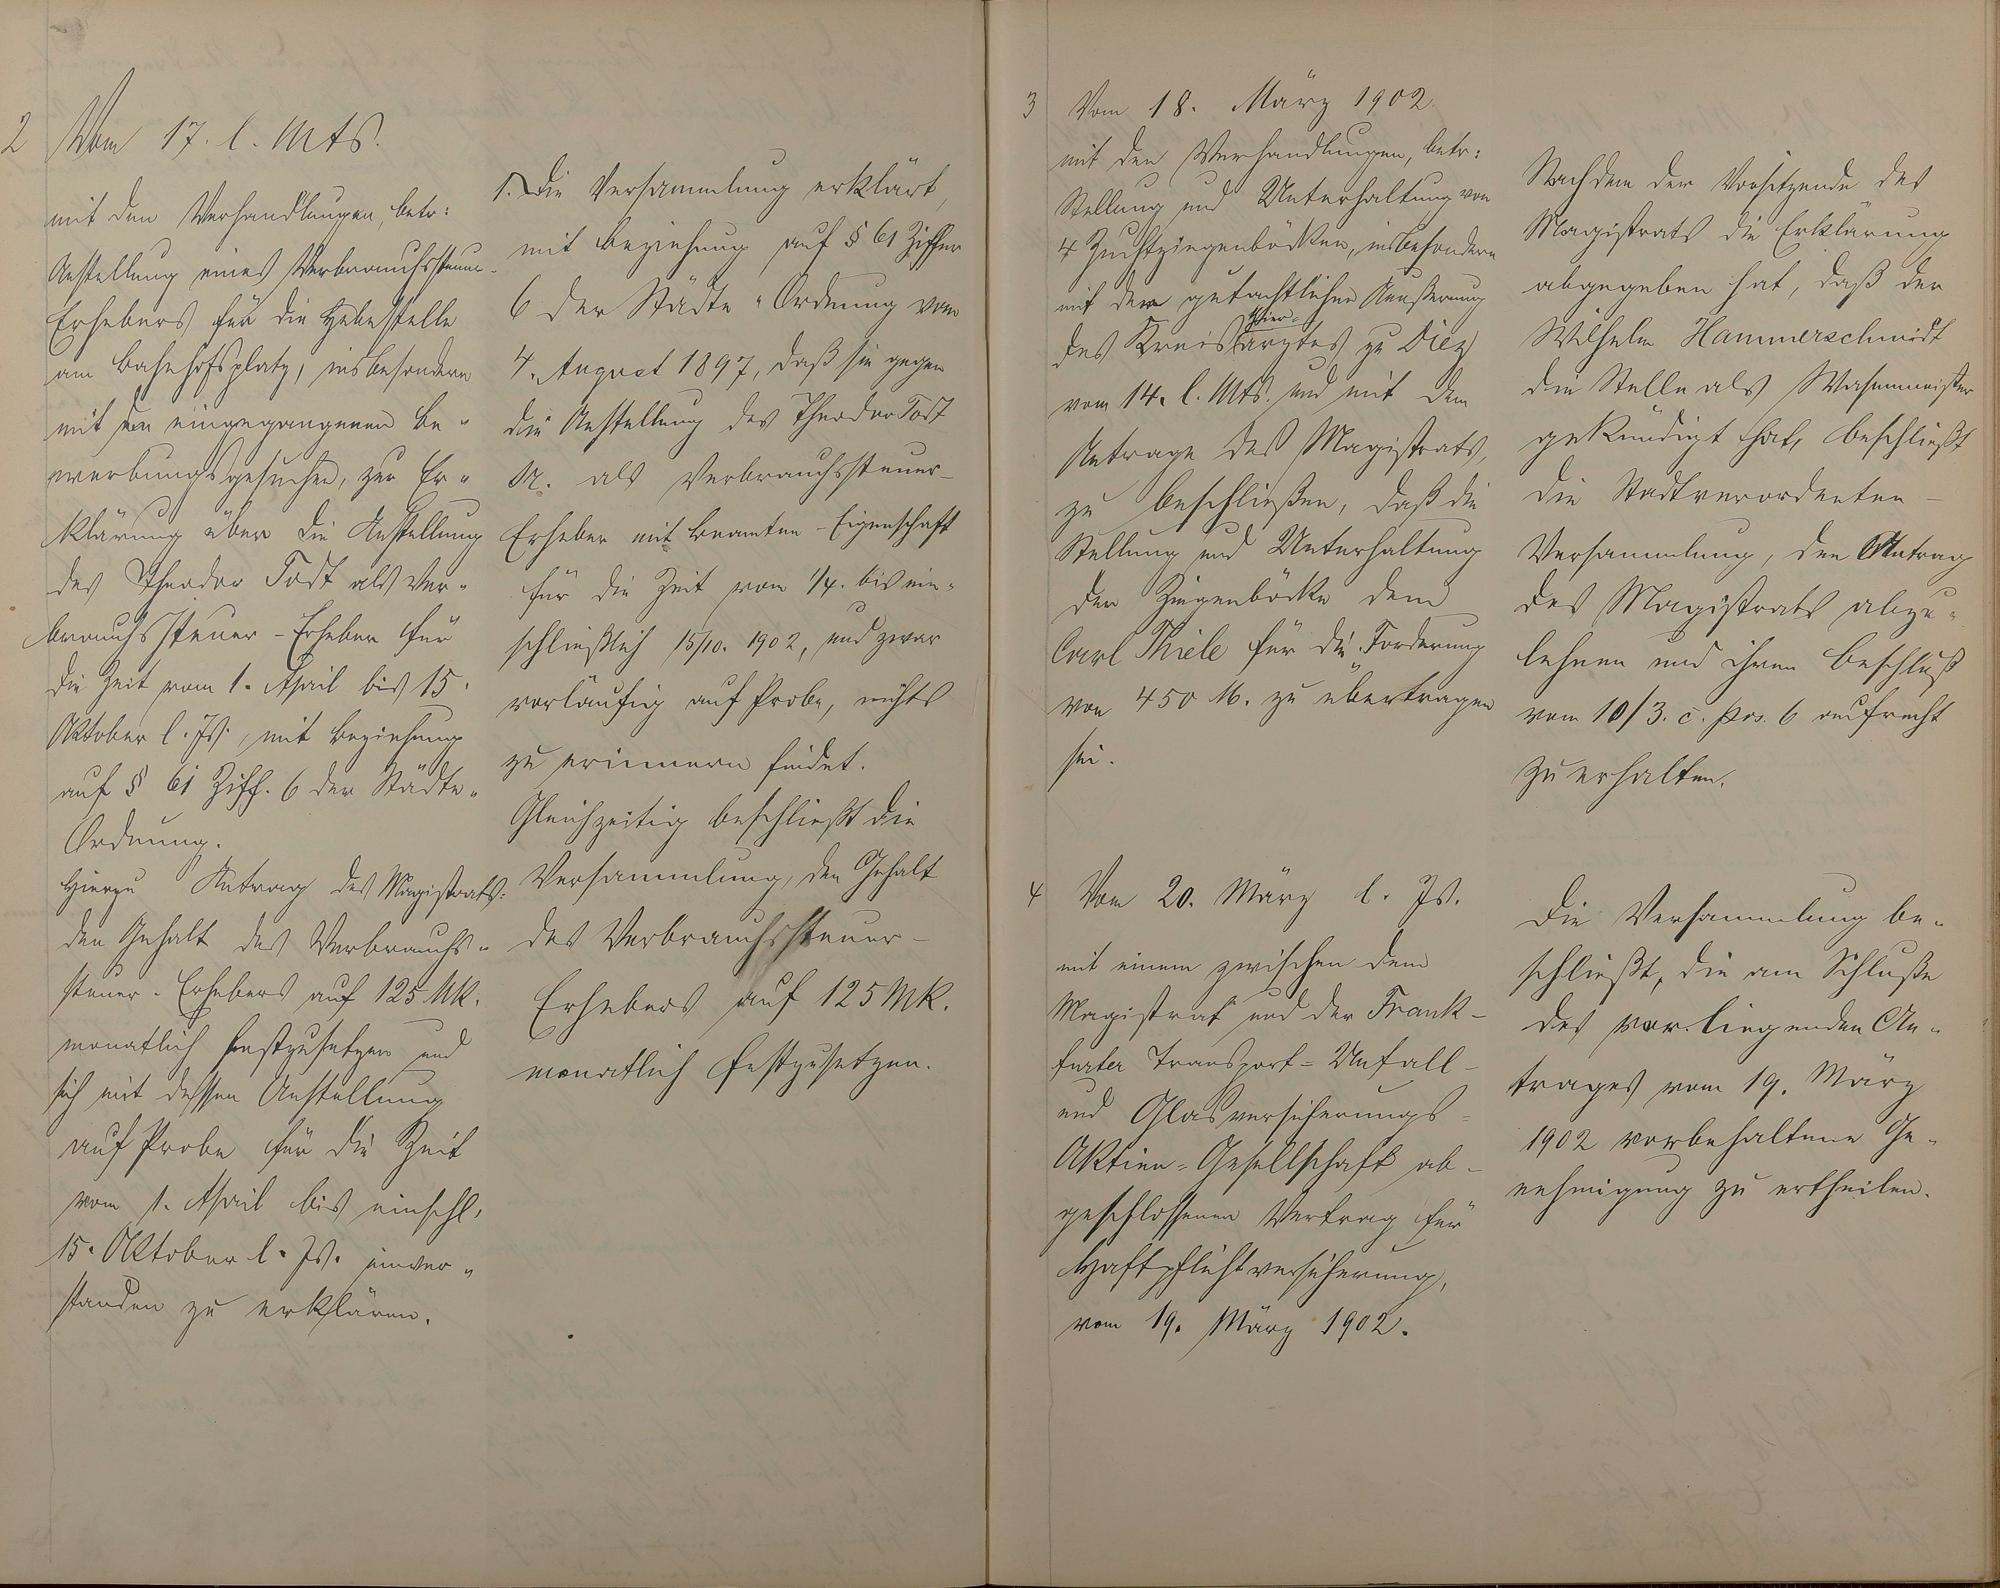 2 Vom 17. l. Mts.
mit den Verhandlungen, betr:
Anstellung eines Verbrauchssteuer-
Erhebers für die Hebestelle
am Bahnhofsplatz, insbesondere
mit den eingegangenen Be-
werbungsgesuchen, zur Er-
klärung über die Anstellung
des Theodor Tost als Ver-
brauchssteuer-Erheber für
die Zeit vom 1. April bis 15.
Oktober l. Js., mit Beziehung
auf § 61 Ziff. 6 der Städte-
Ordnung.
Hierzu Antrag des Magistrats:
den Gehalt des Verbrauchs-
steuer-Erhebers auf 125 Mk.
monatlich festzusetzen und
sich mit dessen Anstellung
auf Probe für die Zeit
vom 1. April bis einschl.
15. Oktober l. Js. einver-
standen zu erklären.
1. Die Versammlung erklärt,
mit Beziehung auf § 61 Ziffer
6 der Städte-Ordnung vom
4. August 1897, daß sie gegen
die Anstellung des Theodor Tost
als Verbrauchssteuer-
Erheber mit Beamten-Eigenschaft
für die Zeit vom 1/4. bis ein-
schließlich 15/10. 1902, und zwar
vorläufig auf Probe, nichts
zu erinnern findet.
Gleichzeitig beschließt die
Versammlung, den Gehalt
des Verbrauchssteuer-
Erhebers auf 125 Mk.
monatlich festzusetzen.
3 Vom 18. März 1902.
mit den Verhandlungen, betr:
Stellung und Unterhaltung von
4 Zuchtziegenböcken, insbesondere
mit der gutachtlichen Aeußerung
des Kreisthierarztes zu Diez
vom 14. l. Mts. und mit dem
Antrage des Magistrats,
zu beschließen, daß die
Stellung und Unterhaltung
der Ziegenböcke dem
Carl Thiele für die Forderung
von 450 M. zu übertragen
sei.
Nachdem der Vorsitzende des
Magistrats die Erklärung
abgegeben hat, daß der
Wilhelm Hammerschmidt
die Stelle als Wasenmeister
gekündigt hat, beschließt
die Stadtverordneten-
Versammlung, den Antrag
des Magistrats abzu-
lehnen und ihren Beschluß
vom 10/3. c. pos. 6 aufrecht
zu erhalten.
4 Vom 20. März l. Js.
mit einem zwischen dem
Magistrat und der Frank-
furter Transport- Unfall-
und Glasversicherungs-
Aktien-Gesellschaft ab-
geschlossenen Vertrag für
Haftpflichtversicherung,
vom 19. März 1902.
Die Versammlung be-
schließt, die am Schluße
des vorliegenden An-
trages vom 19. März
1902 vorbehaltene Ge-
nehmigung zu ertheilen.